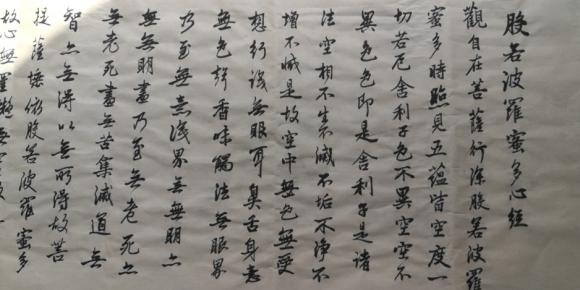 般若波羅蜜多心経
觀自在菩薩行深般若波羅
蜜多時照見五蘊皆空度一
切苦厄舍利子色不異空空不
異色色即是舍利子是諸
法空相不生不滅不垢不淨不
增不減是故空中無色無受
想行識無眼耳鼻舌身意
無色聲香味觸法無眼界
乃至無意識界無無明亦
無無明盡乃至無老死亦
無老死盡無苦集滅道無
智亦無得以無所得故菩
提薩埵依般若波羅蜜多
故心無罣礙無